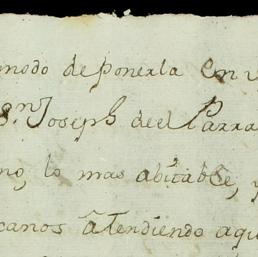 modo de ponerla en
Sn. Joseph de el Parra
no, lo mas abitable,
canos atendiendo aqu